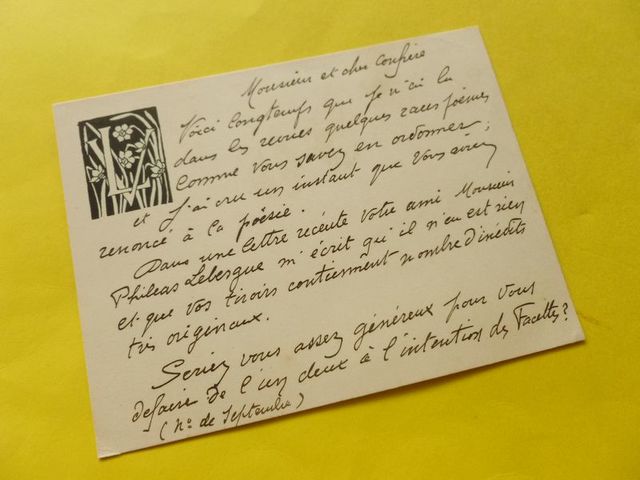 Monsieur et cher confrère
LV
Voici longtemps que je n'ai lu
dans les revues quelques rares poèmes
comme vous savez en ordonner ;
et j'ai cru un instant que vous aviez
renoncé à la poésie.
Dans une lettre récente votre ami Monsieur
Phileas Lebesgue m'écrit qu'il n'en est rien
et que vos tiroirs contiennent nombre d'inédits
très originaux.
Seriez vous assez généreux pour vous
défaire de l'un deux à l'intention des Facettes ?
(No de Septembre)